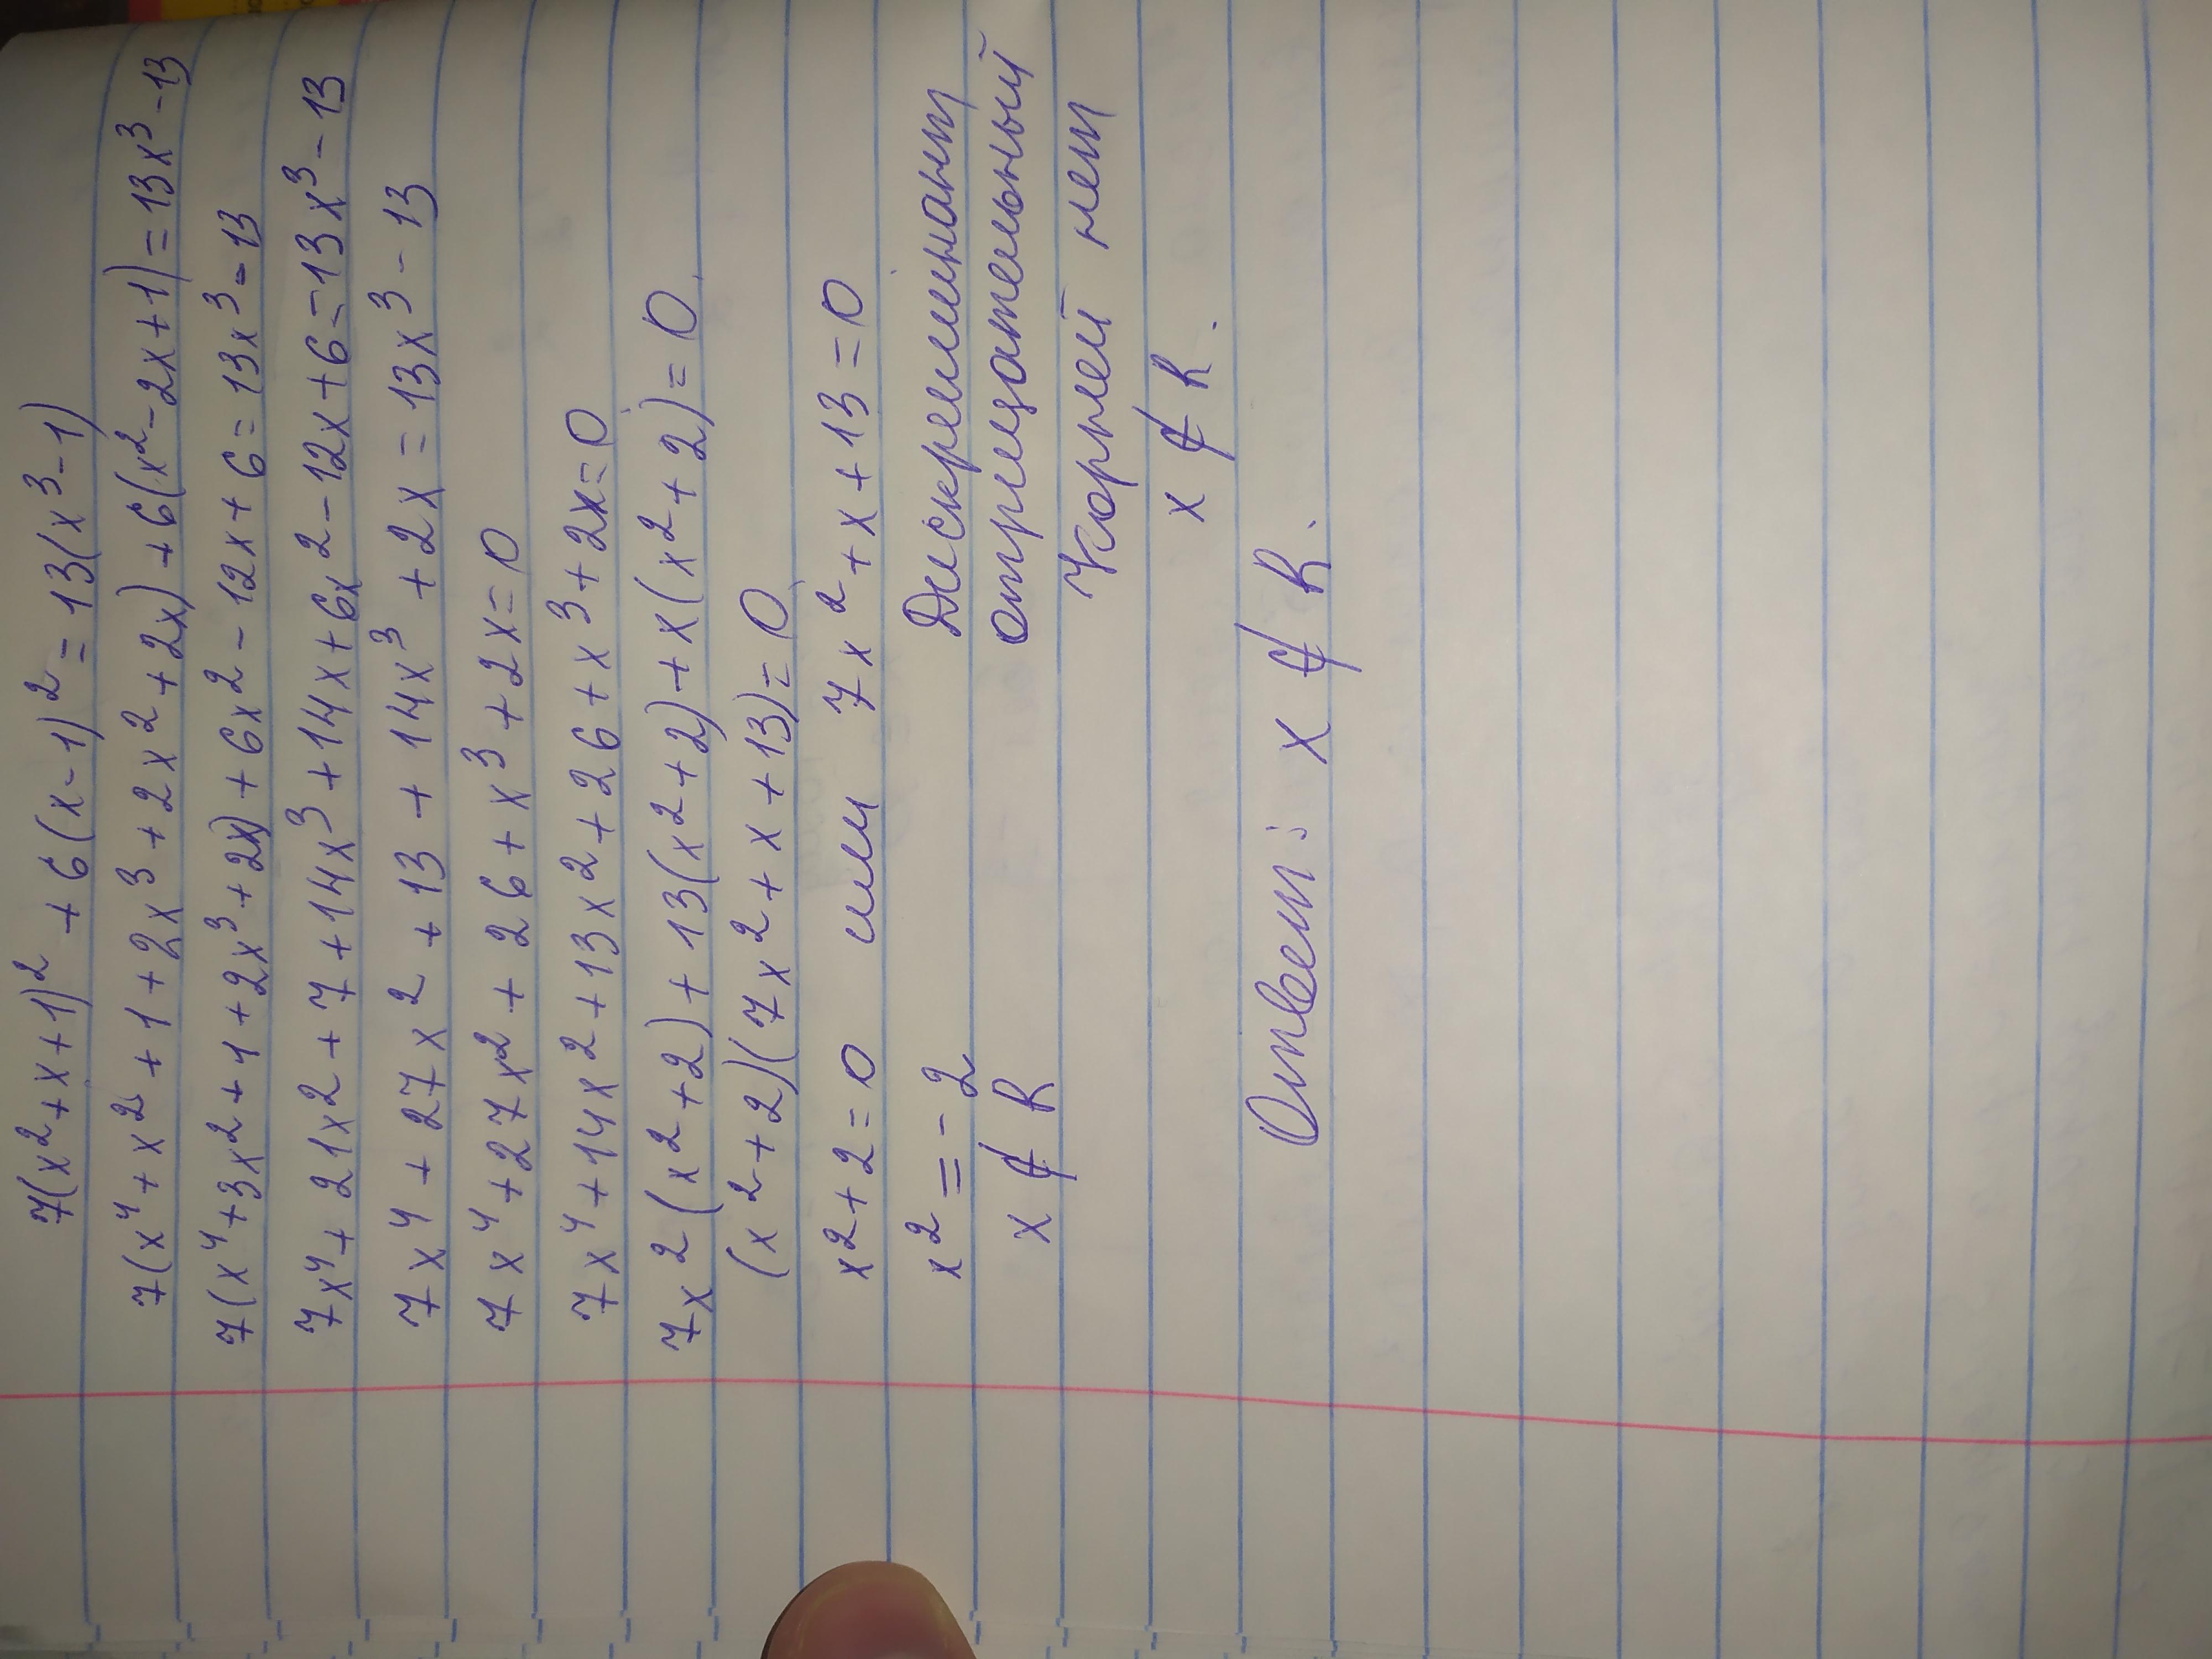 7(x²+x+1)² + 6(x-1)² = 13(x³-1)
7(x⁴+x²+1+2x³+2x²+2x)+6(x²-2x+1)=13x³-13
7(x⁴+3x²+1+2x³+2x)+6x²-12x+6=13x³-13
7x⁴+21x²+7+14x³+14x+6x²-12x+6=13x³-13
7x⁴+27x²+13+14x³+2x=13x³-13
7x⁴+27x²+26+x³+2x=0
7x⁴+14x²+13x²+26+x³+2x=0
7x²(x²+2)+13(x²+2)+x(x²+2)=0
(x²+2)(7x²+x+13)=0
x²+2=0 или 7x²+x+13=0
x²=-2 Дискреминант
x∉R отрицательный
Корней нет
x∉R.
Ответ: x∉R.